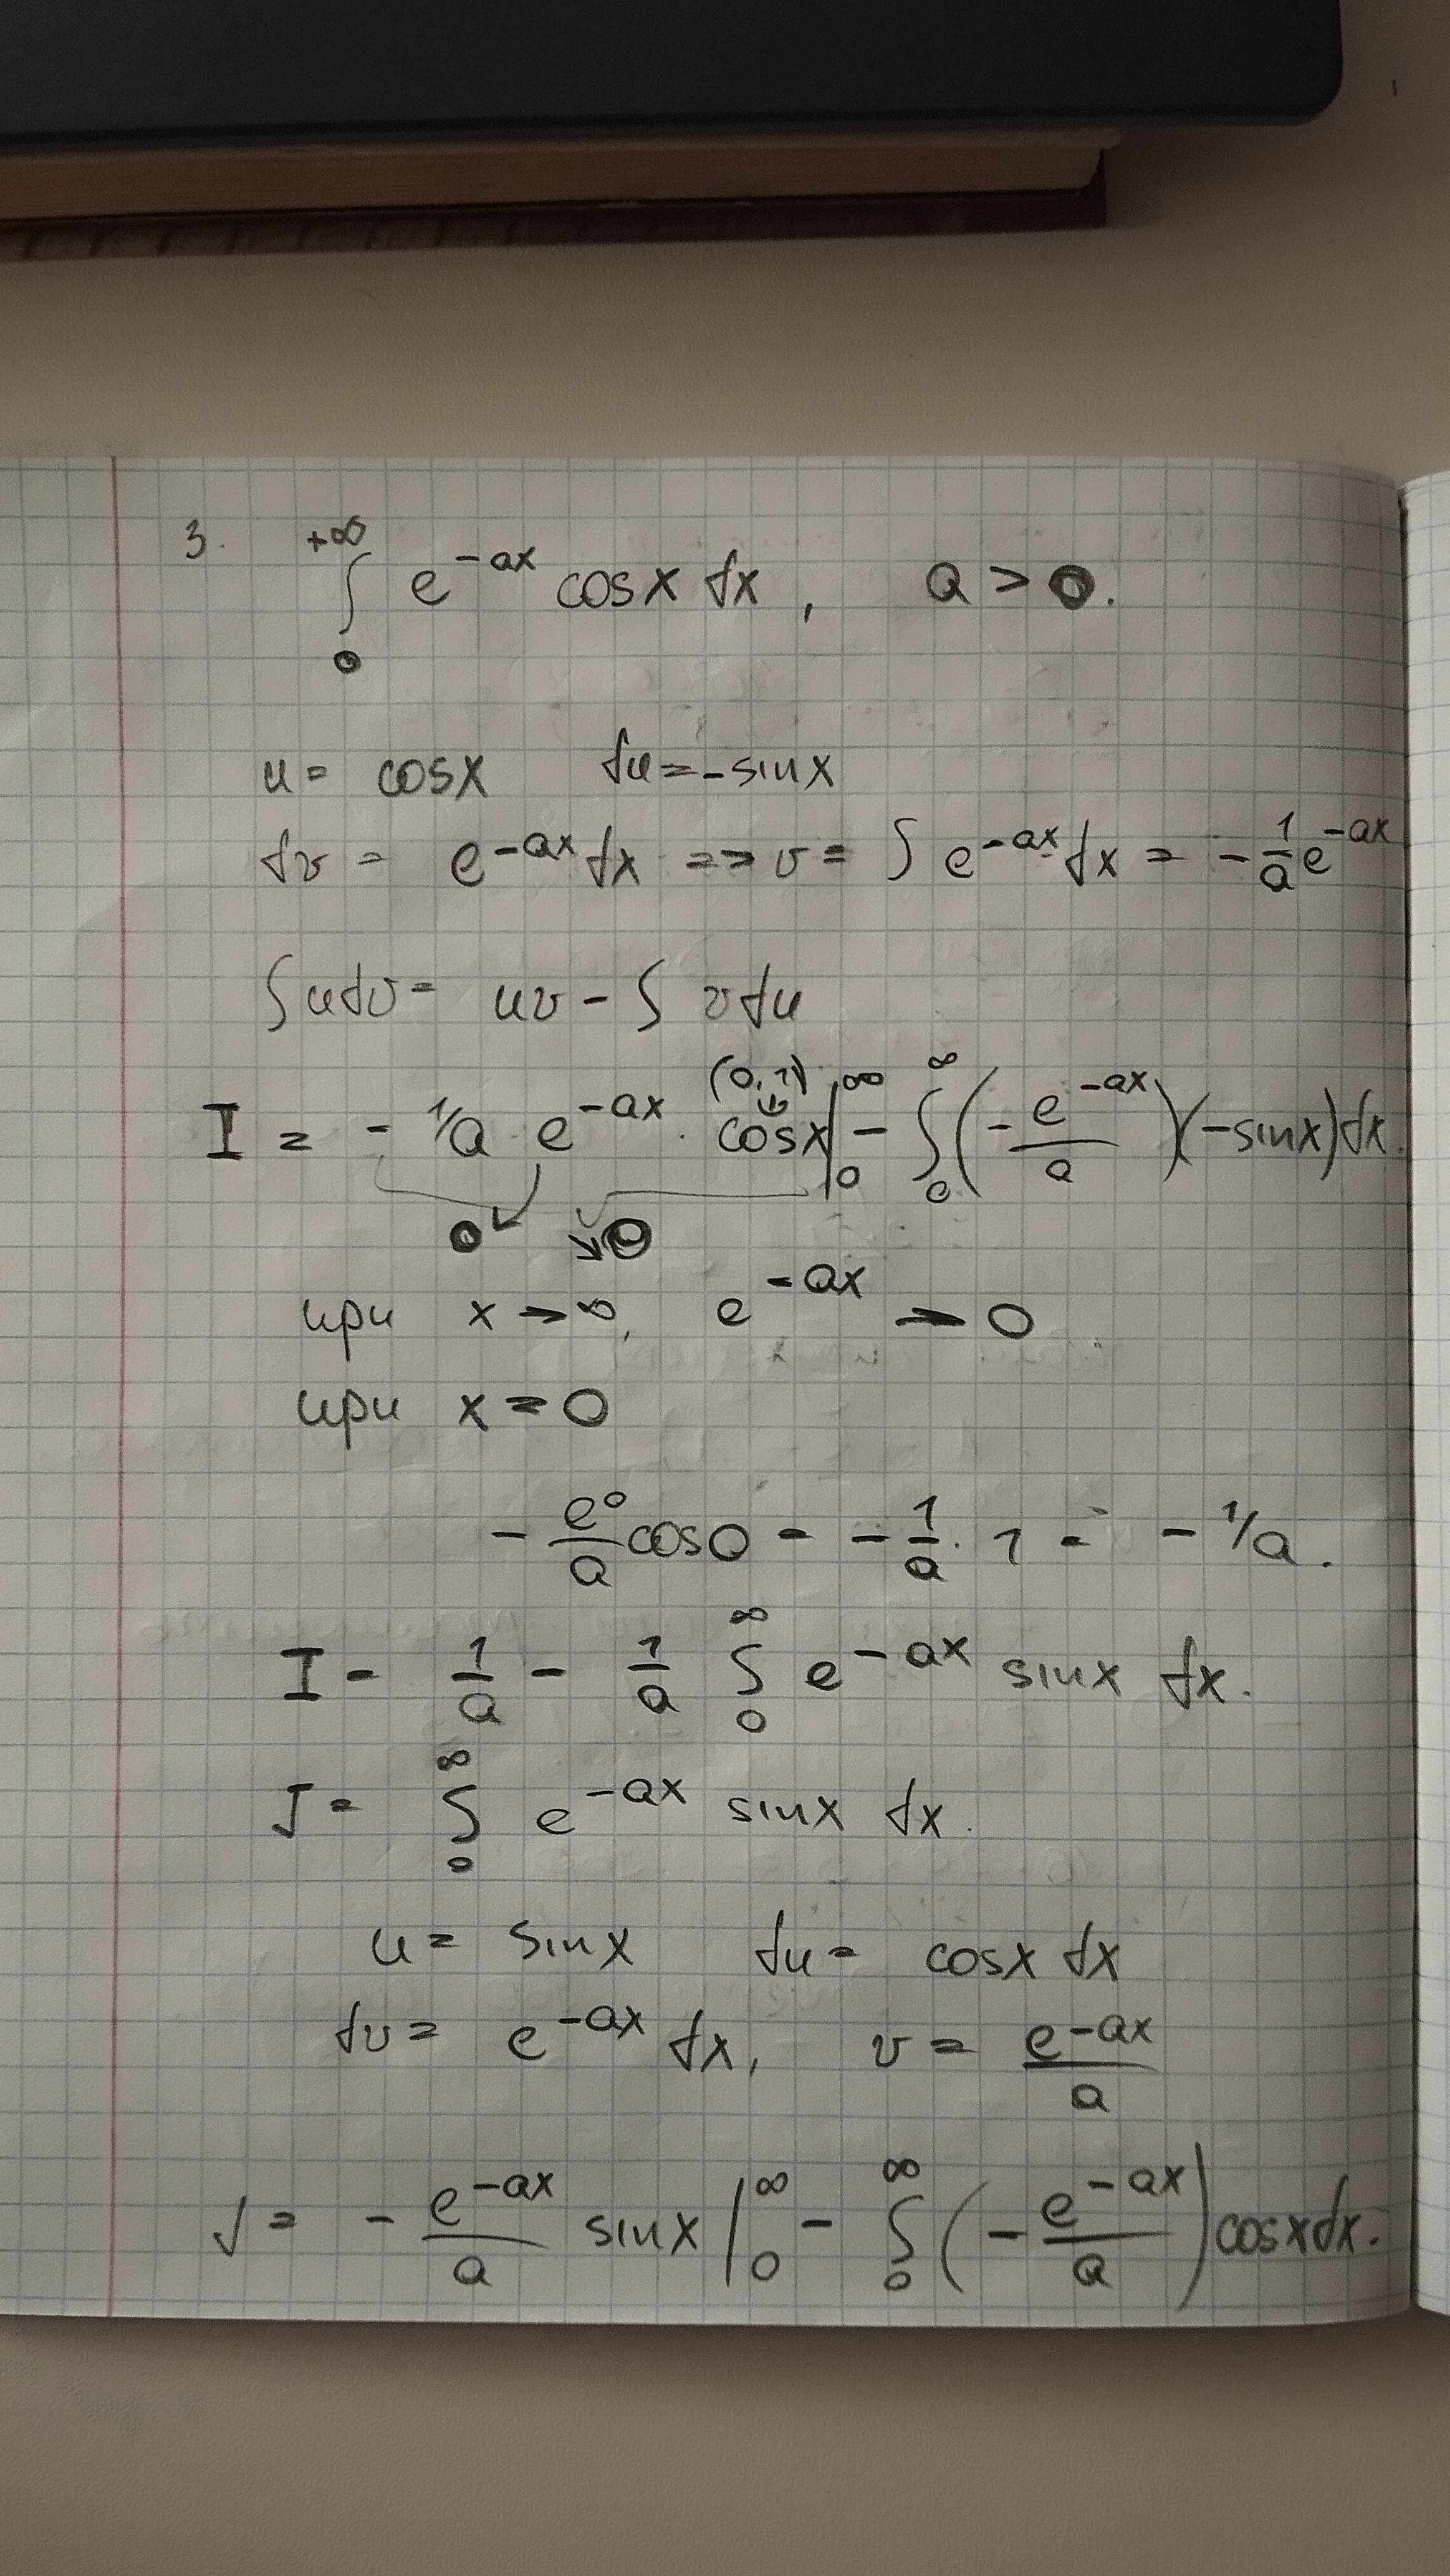 3. +∞
∫ e^{-ax} cosx dx, a > 0.
0
u = cosx du = -sinx
dv = e^{-ax} dx => v = ∫ e^{-ax} dx = -\frac{1}{a} e^{-ax}
∫udv = uv - ∫ vdu
(0,1)
I = - 1/a e^{-ax} · cosx |_0^∞ - ∫_0^∞ (-\frac{e^{-ax}}{a})(-sinx)dx.
0 → 0
при x → ∞, e^{-ax} → 0
при x = 0
-\frac{e^0}{a} cos0 = -\frac{1}{a} · 1 = - 1/a.
I = \frac{1}{a} - \frac{1}{a} ∫_0^∞ e^{-ax} sinx dx.
J = ∫_0^∞ e^{-ax} sinx dx.
u = sinx du = cosx dx
dv = e^{-ax} dx, v = \frac{e^{-ax}}{a}
J = -\frac{e^{-ax}}{a} sinx |_0^∞ - ∫_0^∞ (-\frac{e^{-ax}}{a}) cosxdx.